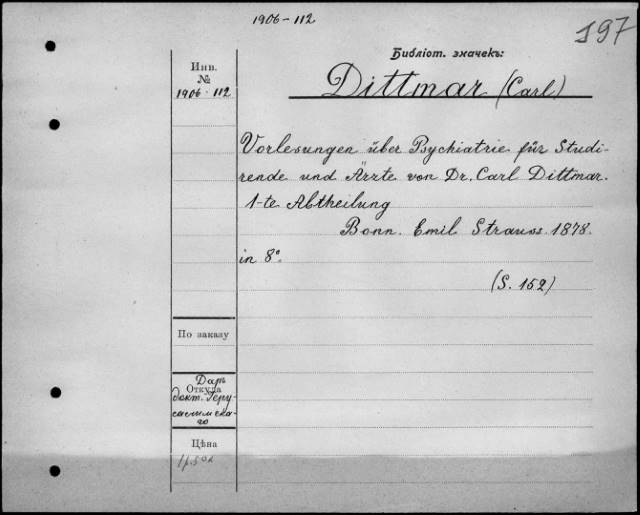 1906-112
197
Библіот. значекъ:
Инв.
№
1906-112
Dittmar (Carl)
Vorlesungen über Psychiatrie für Studi-
rende und Ärzte von Dr. Carl Dittmar.
1-te Abtheilung
Bonn. Emil Strauss. 1878.
in 8°.
(S. 152)
По заказу
Даръ
Откуда
докт. Іеру-
салимска-
го
Цѣна